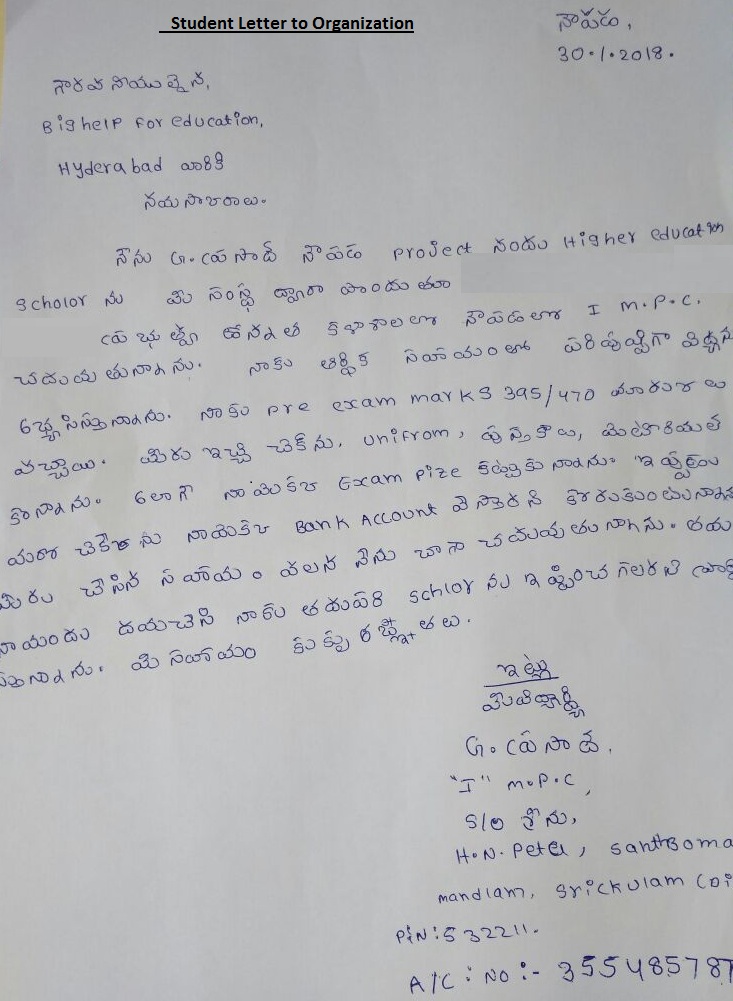 Student Letter to Organization
నౌపడ,
30.1.2018.
గౌరవనీయులైన,
Bighelp For education,
Hyderabad వారికి
నమస్కారాలు.
నేను G. ప్రసాద్ నౌపడ project నందు Higher education
scholor ను మీ సంస్థ ద్వారా పొందుతూ
ప్రభుత్వ కళాశాలలో నౌపడలో I M.P.C.
చదువుతున్నాను. నాకు ఆర్థిక సహాయంలో
నాకు pre exam marks 395/470 మార్కులు
వచ్చాయి. మీరు ఇచ్చి చెక్ ను, unifrom, పుస్తకాలు, మెటీరియల్
కొన్నాను. అలాగే నాయొక్క Exam pize కట్టుకున్నాను. ఇప్పుడు
మరో చెక్ ను నాయొక్క Bank Account వేస్తారని కోరుకుంటున్నాను
మీరు చేసిన సహాయం వలన నేను బాగా చదువుతున్నాను. దయ
నాయందు దయచేసి నాకు తదుపరి schlor ను ఇప్పించగలరని
మీ సహాయం కు కృతజ్ఞతలు.
ఇట్లు
మీ విద్యార్థి
G. ప్రసాద్.
"I" M.P.C,
S/o శ్రీను,
H.N. Peta, santhboma
mandlam, Srickulam (Di
PiN:532211.
A/C: No:- 355485787